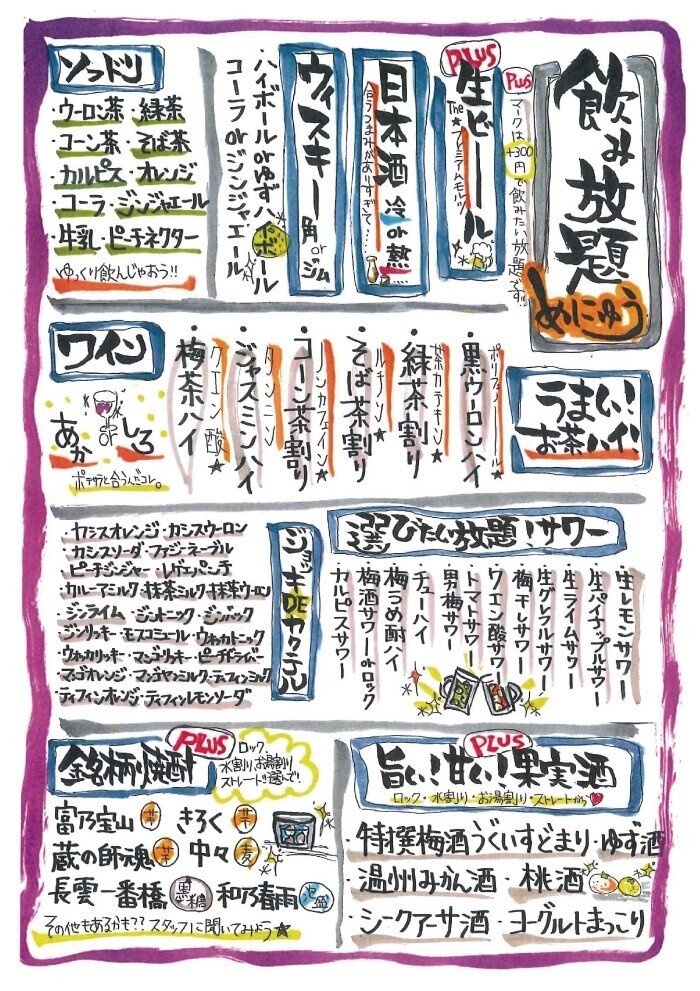 飲み放題
めにゅう
PLUS
マークは+300円で飲みたい放題です!!
PLUS
生ビール
The★プレミアムモルツ
日本酒 冷or熱
合うつまみがありすぎて…
ウィスキー 角orジム
・ハイボールorゆずハイボール
コーラorジンジャエール
ソフドリ
・ウーロン茶・緑茶
・コーン茶・そば茶
・カルピス・オレンジ
・コーラ・ジンジャエール
・牛乳・ピーチネクター
ゆっくり飲んじゃおう!!
うまい!
お茶ハイ!
・黒ウーロンハイ
ポリフェノール★
・緑茶割り
茶カテキン★
・そば茶割り
ルチン★
・コーン茶割り
ノンカフェイン★
・ジャスミンハイ
タンニン★
・梅茶ハイ
クエン酸★
ワイン
あか or しろ
ポテサラと合うんだコレ。
選びたい放題!サワー
・生レモンサワー
・生パイナップルサワー
・生ライムサワー
・生グレフルサワー
・梅干しサワー
・クエン酸サワー
・トマトサワー
・男梅サワー
・チューハイ
・梅うめ酎ハイ
・梅酒サワーorロック
・カルピスサワー
ジョッキDEカクテル
・カシスオレンジ・カシスウーロン
・カシスソーダ・ファジーネーブル
・ピーチジンジャー・レゲエパンチ
・カルーアミルク・抹茶ミルク・抹茶ウーロン
・ジンライム・ジントニック・ジンバック
・ジンリッキー・モスコミュール・ウォッカトニック
・ウォッカリッキー・マンゴリッキー・ピーチドライバー
・マンゴオレンジ・マンゴヤンミルク・ティフィンミルク
・ティフィンオレンジ・ティフィンレモンソーダ
PLUS
金名柄焼酎
ロック、
水割り、お湯割り
ストレート!!選んで!
富乃宝山 芋 きろく 芋
蔵の師魂 芋 中々 麦
長雲一番橋 黒糖 和乃春雨 泡盛
その他もあるかも??スタッフに聞いてみよう★
PLUS
旨い!甘い!果実酒
ロック・水割り・お湯割り・ストレートから♥
・特撰梅酒うぐいすどまり・ゆず酒
・温州みかん酒・桃酒
・シークアーサ酒・ヨーグルトまっこり